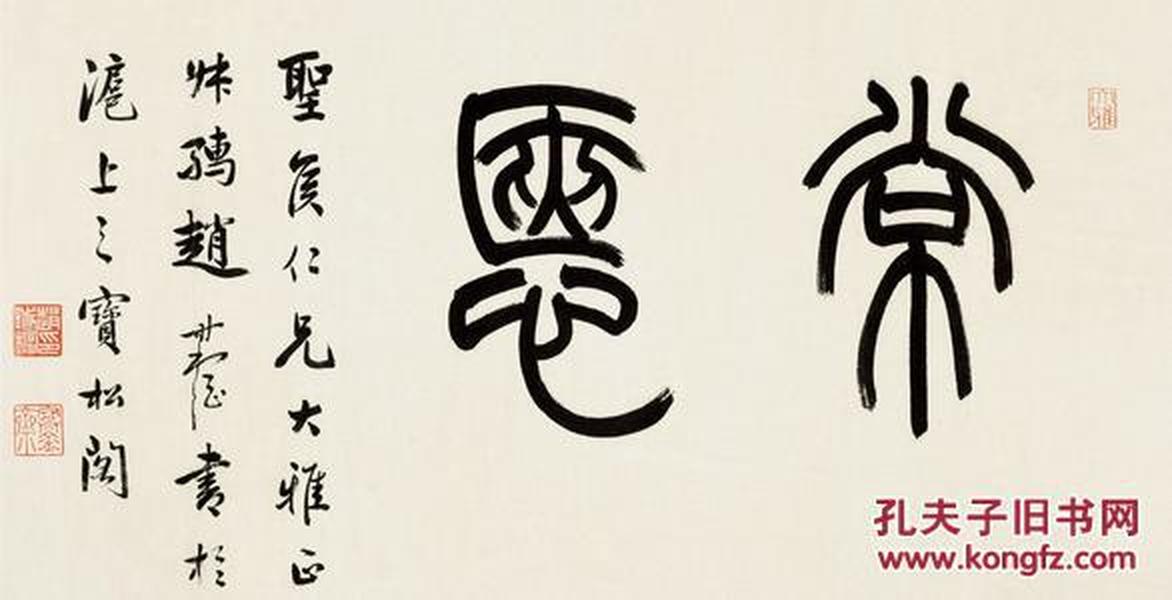 常愜
聖矦仁兄大雅正
叔孺趙書於
滬上之寶松閣
孔夫子旧书网
www.kongfz.com